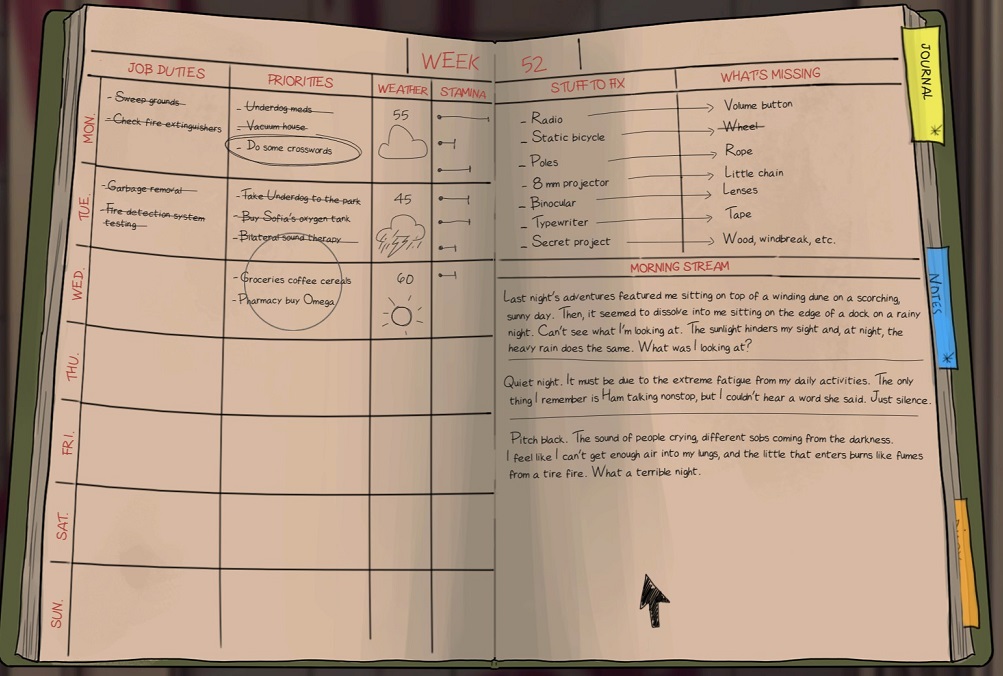 WEEK 52
JOB DUTIES
PRIORITIES
WEATHER
STAMINA
MON.
- Sweep grounds
- Check fire extinguishers
- Underdog meds
- Vacuum house
- Do some crosswords
55
TUE.
- Garbage removal
- Fire detection system
testing
- Take Underdog to the park
- Buy Sofia's oxygen tank
- Bilateral sound therapy
45
WED.
- Groceries coffee cereals
- Pharmacy buy Omega
60
THU.
FRI.
SAT.
SUN.
STUFF TO FIX
WHAT'S MISSING
- Radio
Volume button
- Static bicycle
- Wheel
- Poles
Rope
- 8 mm projector
Little chain
- Binocular
Lenses
- Typewriter
Tape
- Secret project
Wood, windbreak, etc.
MORNING STREAM
Last night's adventures featured me sitting on top of a winding dune on a scorching,
sunny day. Then, it seemed to dissolve into me sitting on the edge of a dock on a rainy
night. Can't see what I'm looking at. The sunlight hinders my sight and, at night, the
heavy rain does the same. What was I looking at?
Quiet night. It must be due to the extreme fatigue from my daily activities. The only
thing I remember is Ham talking nonstop, but I couldn't hear a word she said. Just silence.
Pitch black. The sound of people crying, different sobs coming from the darkness.
I feel like I can't get enough air into my lungs, and the little that enters burns like fumes
from a tire fire. What a terrible night.
JOURNAL
NOTES